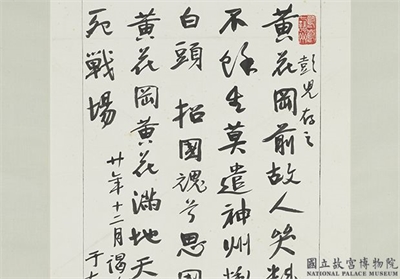 彭兒存之
黃花岡前故人哭
不餘生莫遣神州
白頭 招國魂兮思國
黃花岡黃花滿地天
死戰場
廿年十二月謁
于
國立故宮博物院
NATIONAL PALACE MUSEUM